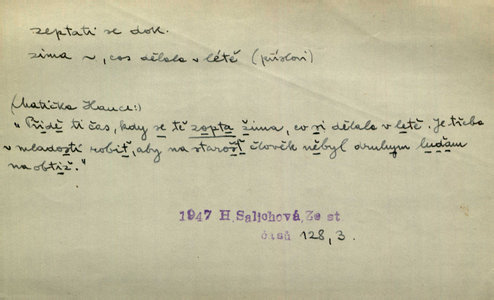 zeptati se dok.
zima ~, cos dělala v létě (přísloví)
(Matička Hanel:)
"Přidě ti čas, kdy se tě zopta žima, co si dělala v letě. Je třeba
v mladosti robiť, aby na starość člověk něbyl druhym luďam
na obtiž."
1947 H, Saljchová, Ze st
časů 128, 3.